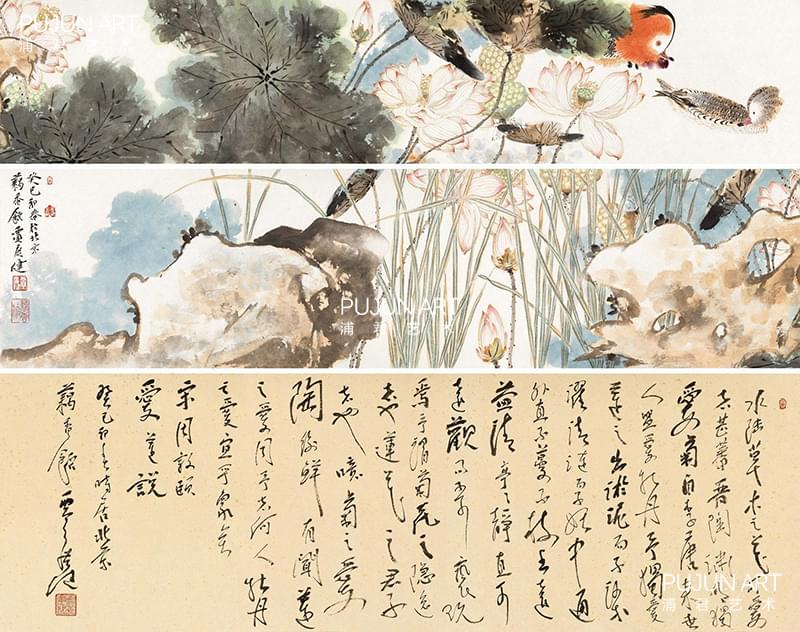 PUJUN ART
浦君艺术
癸巳初春於北京
藕香館賈廣健
PUJUN ART
浦君艺术
水陸草木之花可愛
者甚蕃晋陶渊明獨
愛菊自李唐来世
人盛愛牡丹予獨愛
蓮之出淤泥而不染
濯清漣而不妖中通
外直不蔓不枝香遠
益清亭亭静直可
遠觀不可褻玩
焉予謂菊花之隐逸
者也蓮花之君子
者也噫菊之愛
陶後鮮有聞蓮
之愛同予者何人牡丹
之愛宜乎衆矣
宋周敦頤
愛蓮説
癸巳初春時居北京
藕香館賈廣健
PUJUN ART
浦君艺术